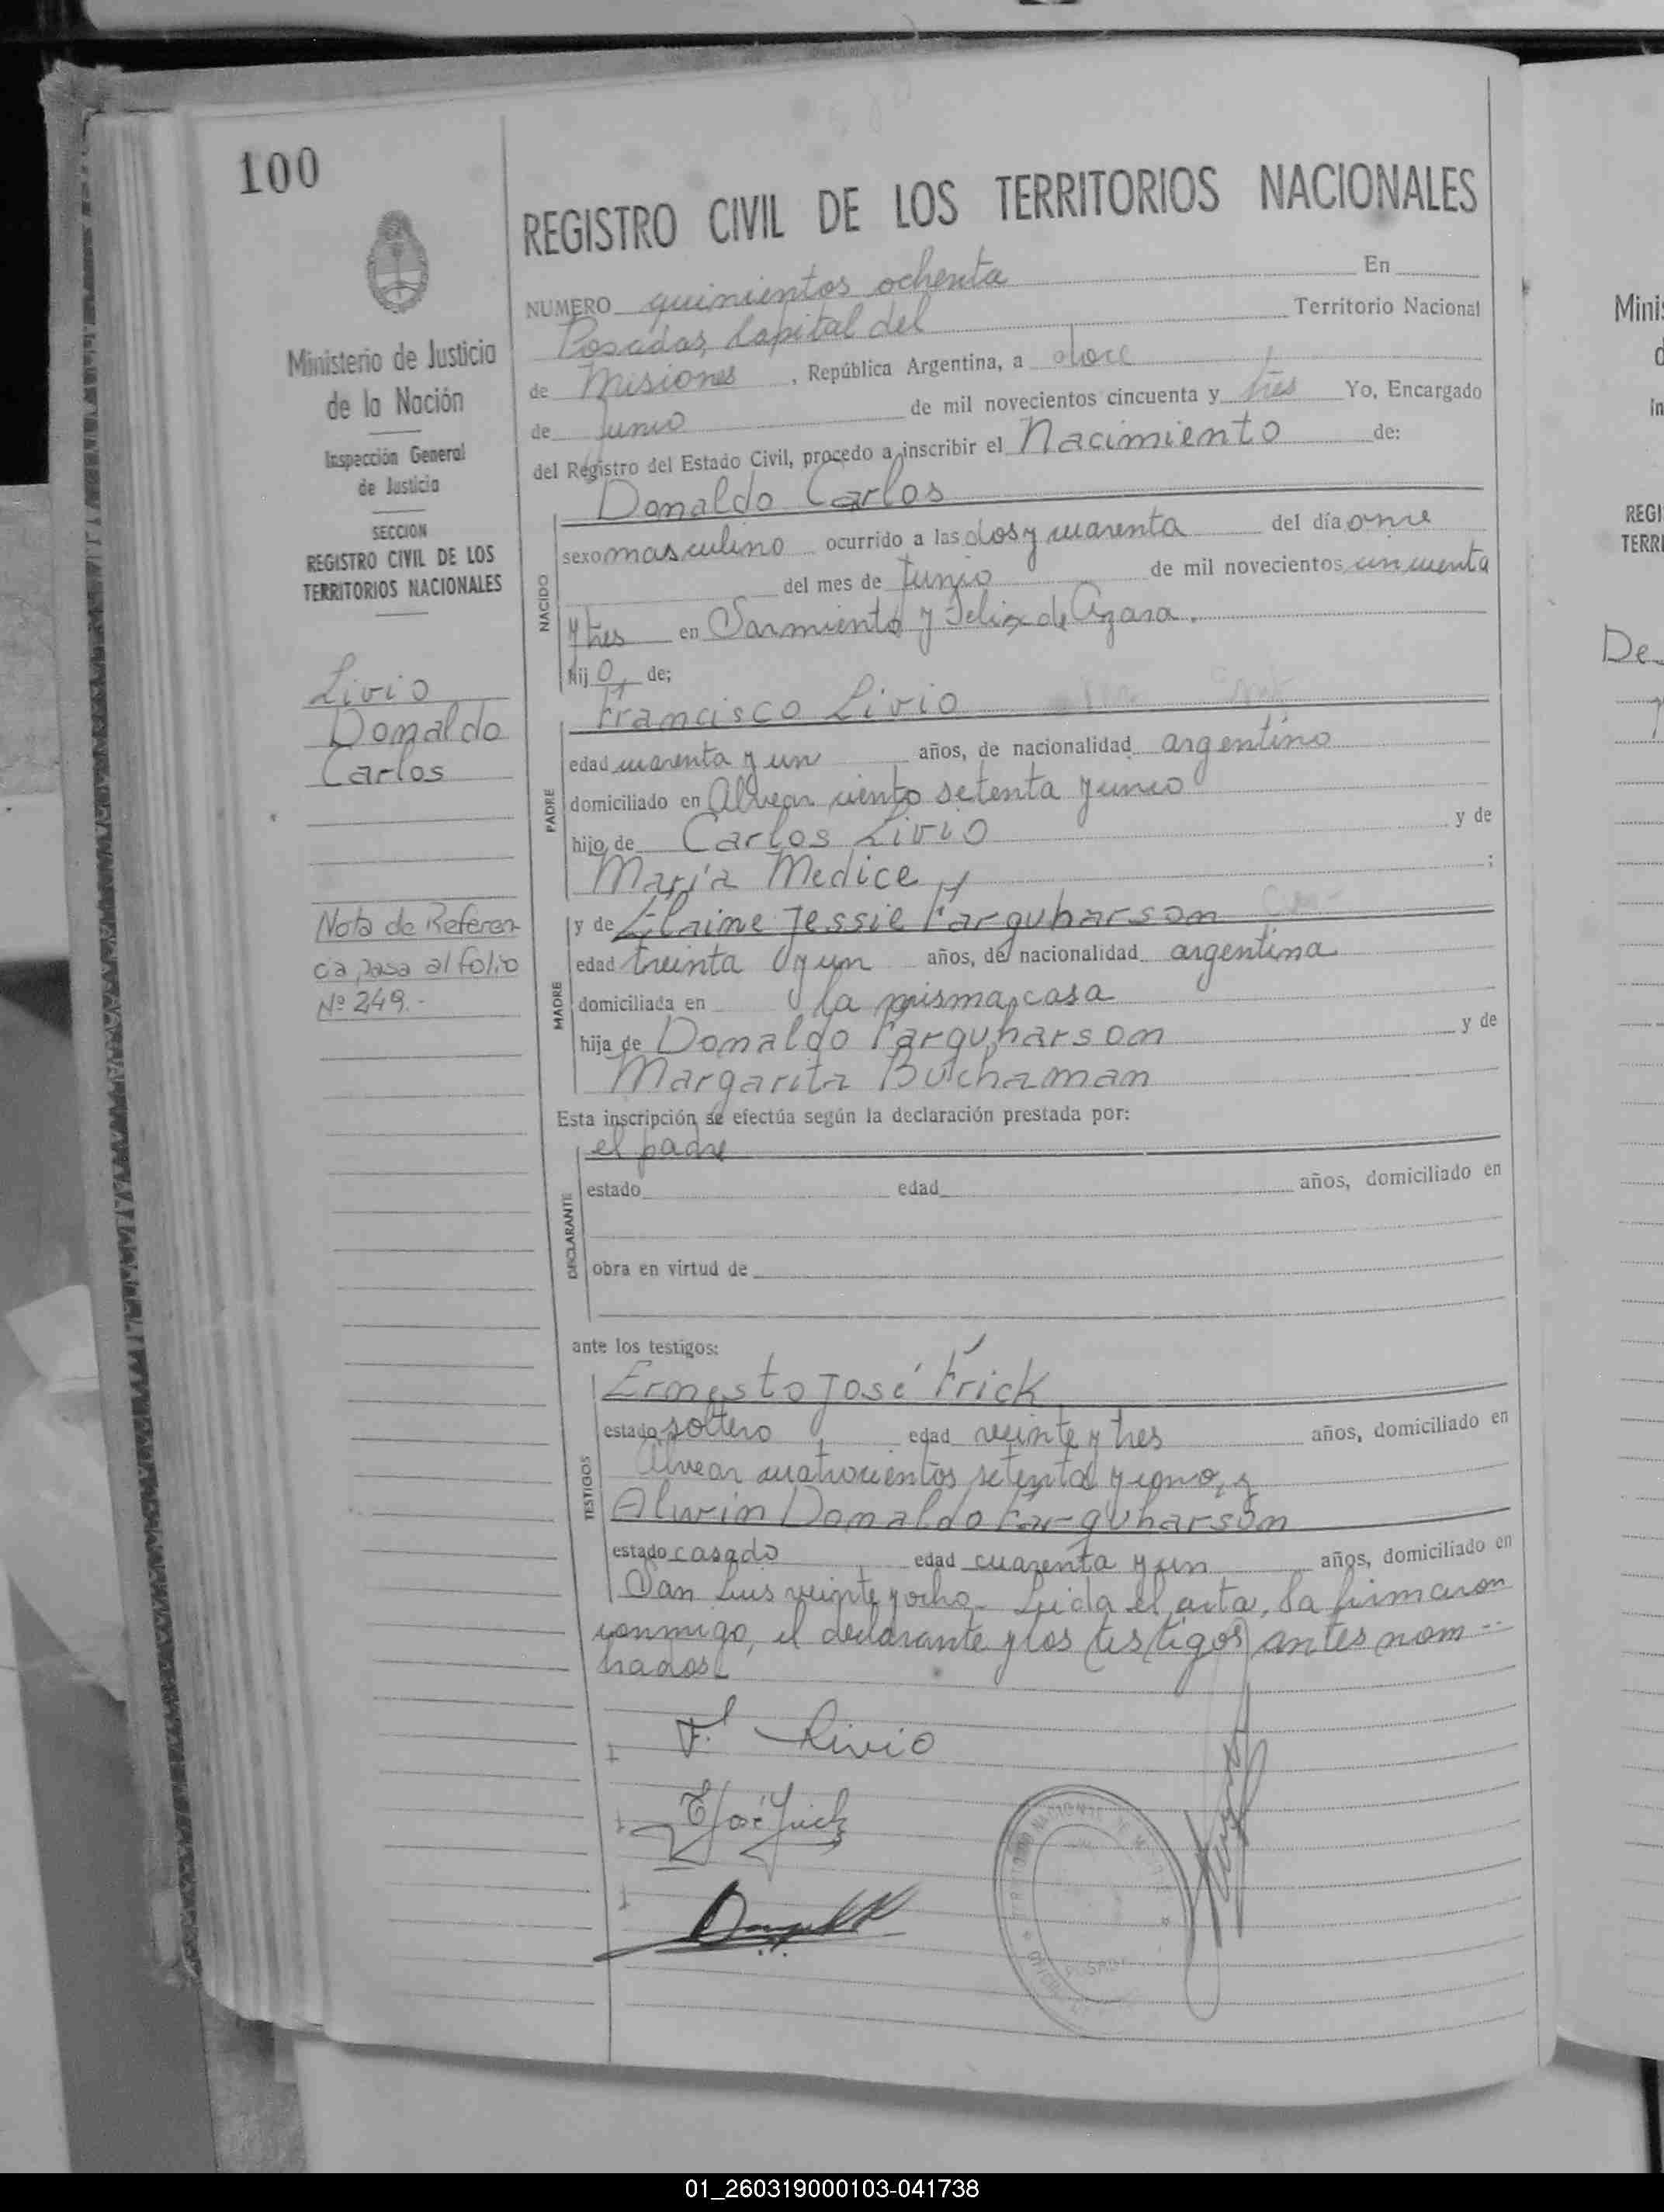 100
REGISTRO CIVIL DE LOS TERRITORIOS NACIONALES
NUMERO quinientos ochenta En
Posadas, Capital del Territorio Nacional
de Misiones, República Argentina, a doce
de Junio de mil novecientos cincuenta y tres Yo, Encargado
del Registro del Estado Civil, procedo a inscribir el Nacimiento de:
Ministerio de Justicia
de la Nación
Inspección General
de Justicia
SECCION
REGISTRO CIVIL DE LOS
TERRITORIOS NACIONALES
Livio
Donaldo
Carlos
Nota de Referen-
cia pasa al folio
Nº 249.-
NACIDO
Donaldo Carlos
sexo masculino ocurrido a las dos y cuarenta del día once
del mes de Junio de mil novecientos cincuenta
y tres en Sarmiento y Felix de Azara.
hij o de;
PADRE
Francisco Livio
edad cuarenta y un años, de nacionalidad argentino
domiciliado en Alvear ciento setenta y cinco
hijo de Carlos Livio y de
María Medice ;
MADRE
y de Elaine Jessie Farquharson
edad treinta y un años, de nacionalidad argentina
domiciliada en la misma casa
hija de Donaldo Farquharson y de
Margarita Butchaman
Esta inscripción se efectúa según la declaración prestada por:
DECLARANTE
el padre
estado edad años, domiciliado en
obra en virtud de
ante los testigos:
TESTIGOS
Ernesto José Frick
estado soltero edad veinte y tres años, domiciliado en
Alvear cuatrocientos setenta y uno, y
Alwin Donaldo Farquharson
estado casado edad cuarenta y un años, domiciliado en
San Luis veinte y ocho.- Leida el acta, la firmaron
conmigo, el declarante y los testigos antes nom-
brados.
F. Livio
E José Frick
POSADAS
Minis
REGI
TERRI
De
01_260319000103-041738